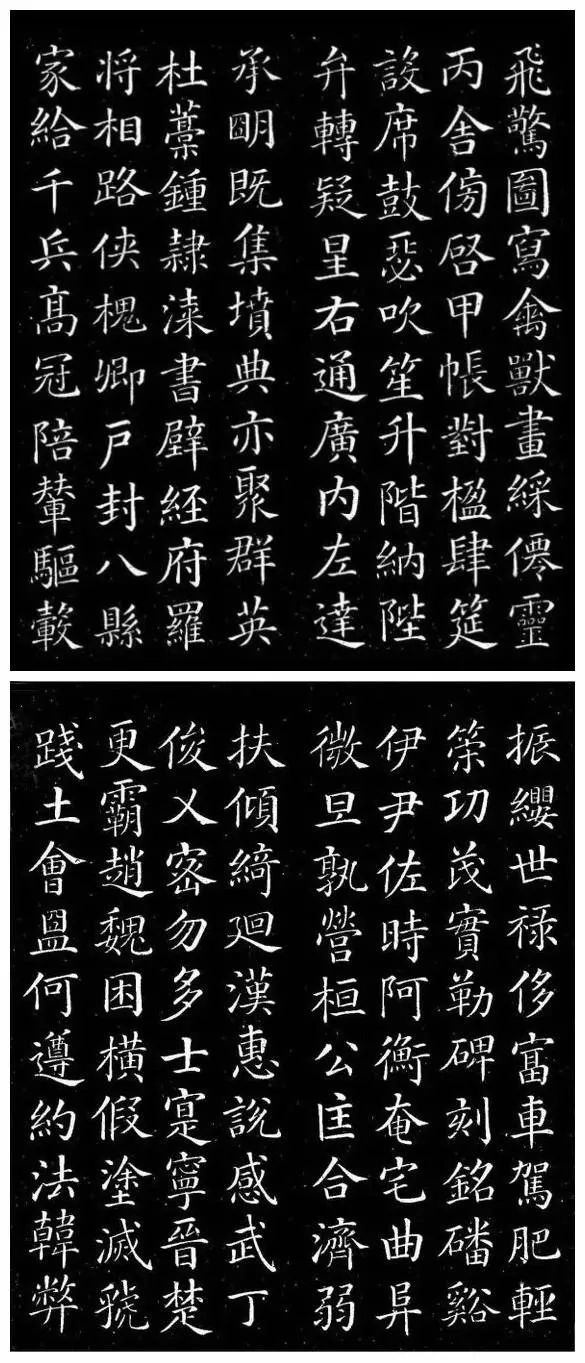 飛驚圖寫禽獸畫綵僊靈
丙舍傍啓甲帳對楹肆筵
設席鼓瑟吹笙升階納陛
弁轉疑星右通廣内左達
承明既集墳典亦聚群英
杜藁鍾隸漆書壁経府羅
将相路俠槐卿戸封八縣
家給千兵髙冠陪輦驅轂
振纓世禄侈富車駕肥軽
策功茂實勒碑刻銘磻谿
伊尹佐時阿衡奄宅曲阜
微旦孰營桓公匡合濟弱
扶傾綺迴漢惠説感武丁
俊乂密勿多士寔寧晉楚
更霸趙魏困横假塗滅虢
踐土會盟何遵約法韓弊